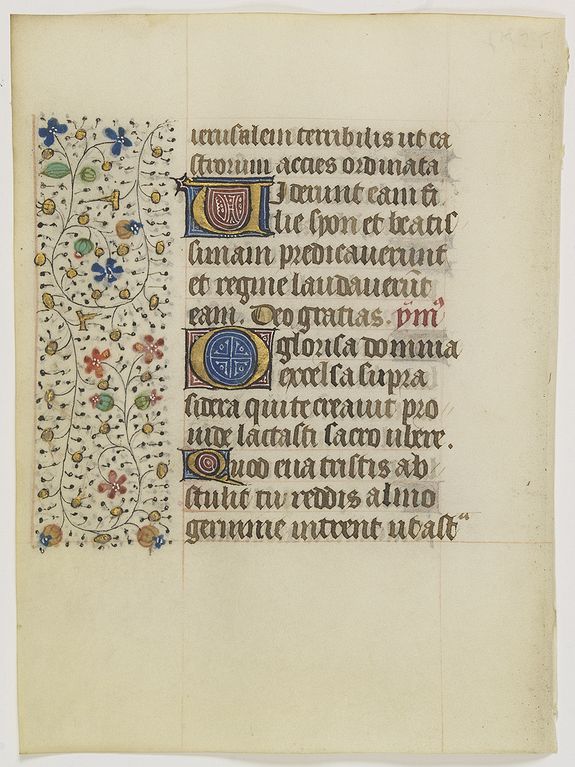 ierusalem terribilis ut ca
strorum acies ordinata
Viderunt eam fi
lie syon et beatis
simam predicaverunt
et regine laudaverūt
eam. Deo gratias. ym̄⁹
O gloriosa domina
excelsa supra
sidera qui te creavit pro
vide lactasti sacro ubere.
Quod eva tristis ab
stulit tu reddis almo
germine intrent ut astᵃ